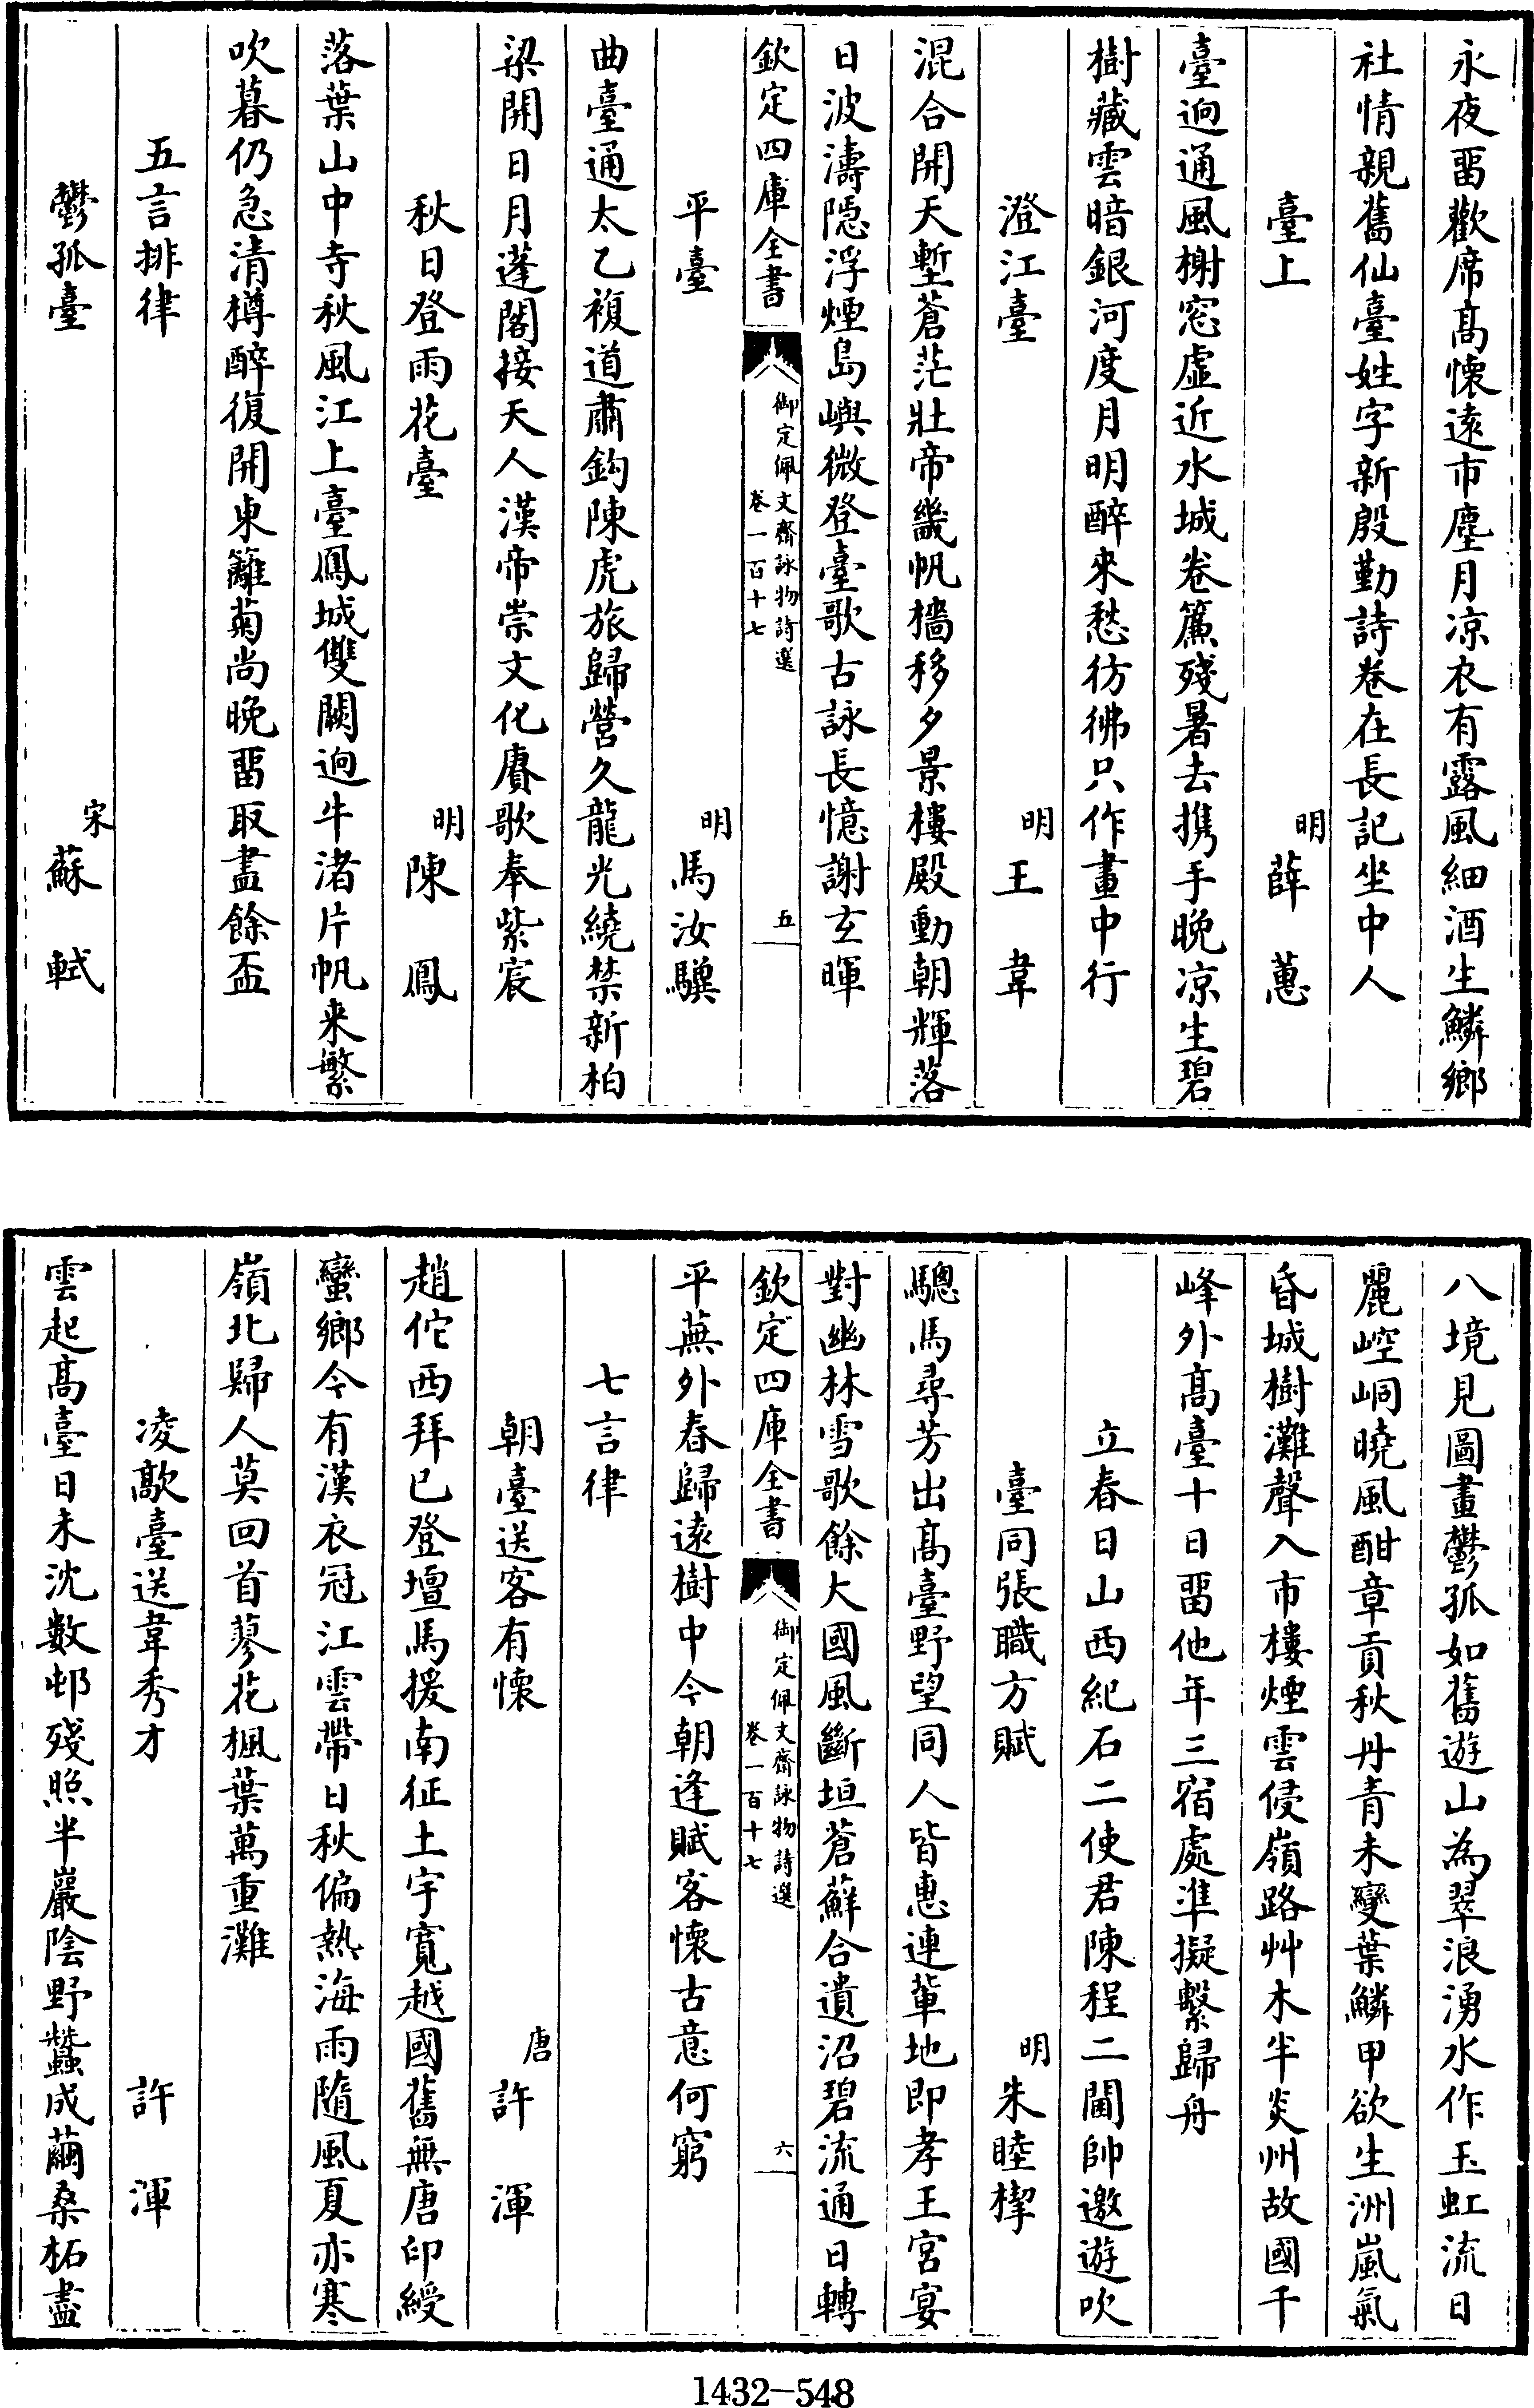 永夜畱歡席高懷遠市塵月凉衣有露風細酒生鱗鄉
社情親舊仙臺姓字新殷勤詩卷在長記坐中人
臺上　明薛蕙
臺逈通風榭窓虛近水城卷簾殘暑去攜手晚凉生碧
樹藏雲暗銀河度月明醉來愁彷彿只作畫中行
澄江臺　明王韋
混合開天塹蒼茫壯帝畿帆檣移夕景樓殿動朝輝落
日波濤隱浮煙島嶼微登臺歌古詠長憶謝玄暉
欽定四庫全書　御定佩文齋詠物詩選卷一百十七　五
平臺　明馬汝驥
曲臺通太乙複道肅鈎陳虎旅歸營久龍光繞禁新柏
梁開日月蓬閣接天人漢帝崇文化賡歌奉紫宸
秋日登雨花臺　明陳鳳
落葉山中寺秋風江上臺鳳城雙闕逈牛渚片帆来繁
吹暮仍急清樽醉復開東籬菊尚晚畱取盡餘盃
五言排律
鬱孤臺　宋蘇軾
八境見圖畫鬱孤如舊遊山為翠浪湧水作玉虹流日
麗崆峒曉風酣章貢秋丹青未變葉鱗甲欲生洲嵐氣
昏城樹灘聲入市樓煙雲侵嶺路艸木半炎州故國千
峰外高臺十日畱他年三宿處準擬繫歸舟
立春日山西紀石二使君陳程二閫帥邀遊吹
臺同張職方賦　明朱睦㮮
驄馬尋芳出高臺野望同人皆惠連輩地即孝王宮宴
對幽林雪歌餘大國風斷垣蒼蘚合遺沼碧流通日轉
欽定四庫全書　御定佩文齋詠物詩選卷一百十七　六
平蕪外春歸遠樹中今朝逢賦客懷古意何窮
七言律
朝臺送客有懷　唐許渾
趙佗西拜已登壇馬援南征土宇寬越國舊無唐印綬
蠻鄉今有漢衣冠江雲帶日秋偏熱海雨隨風夏亦寒
嶺北歸人莫回首蓼花楓葉萬重灘
凌歊臺送韋秀才　許渾
雲起高臺日未沈數邨殘照半巖陰野蠶成繭桑柘盡
1432—548